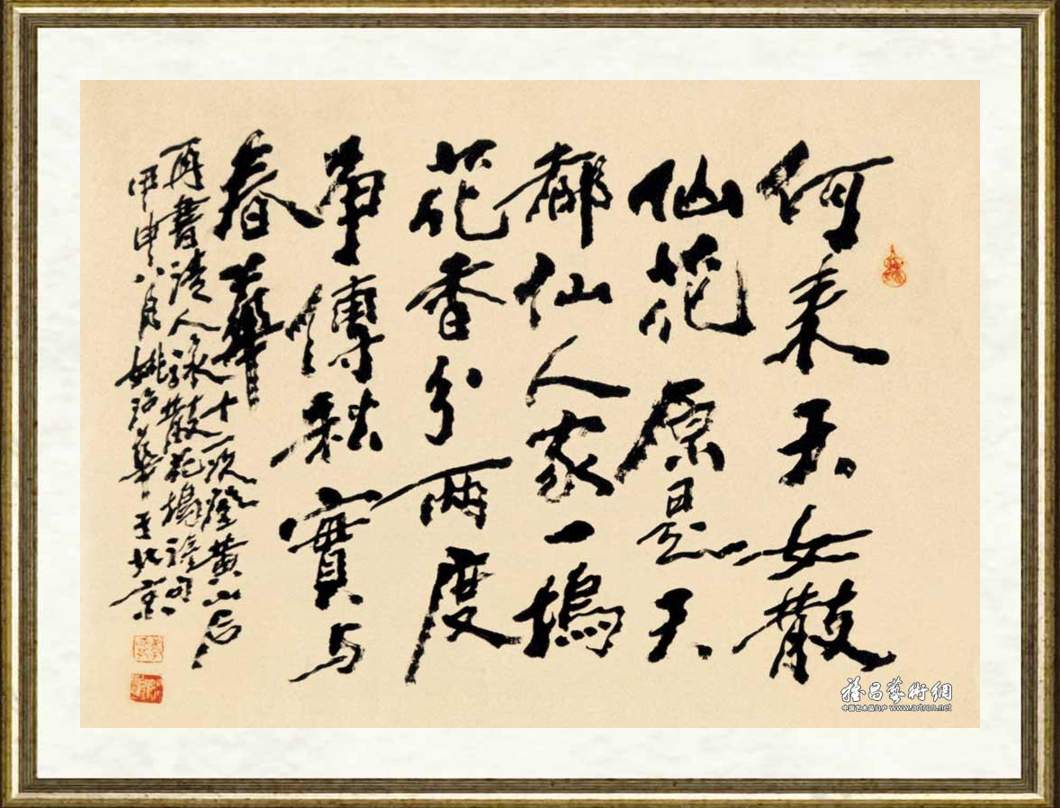 何来天女散
仙花原是天
都仙人家一塢
花香分两度
争傳秋實与
春華 十一次登黄山后
再書清人詠散花塢詩句
甲申八月姚治華于北京
雅昌藝術網
中国艺术品门户 www.artron.net